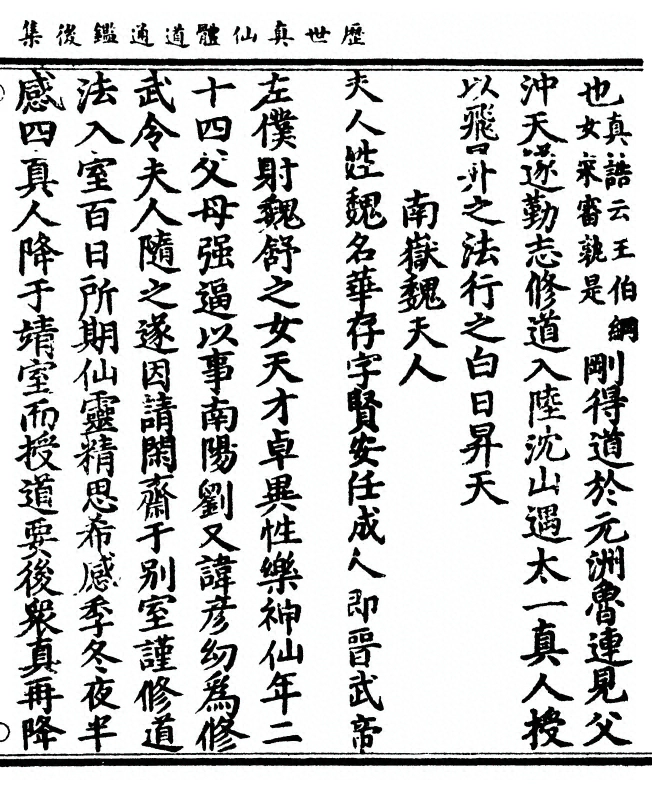 歷世真仙體道通鑑後集
也真誥云王伯綱
女未審孰是
剛得道於元洲魯連見父
沖天遂勤志修道入陸沈山遇太一真人授
以飛昇之法行之白日昇天
南嶽魏夫人
夫人姓魏名華存字賢安任成人即晉武帝
左僕射魏舒之女天才卓異性樂神仙年二
十四父母强逼以事南陽劉又諱彥幼爲修
武令夫人隨之遂因請閑齋于別室謹修道
法入室百日所期仙靈精思希感季冬夜半
感四真人降于靖室而授道要後眾真再降